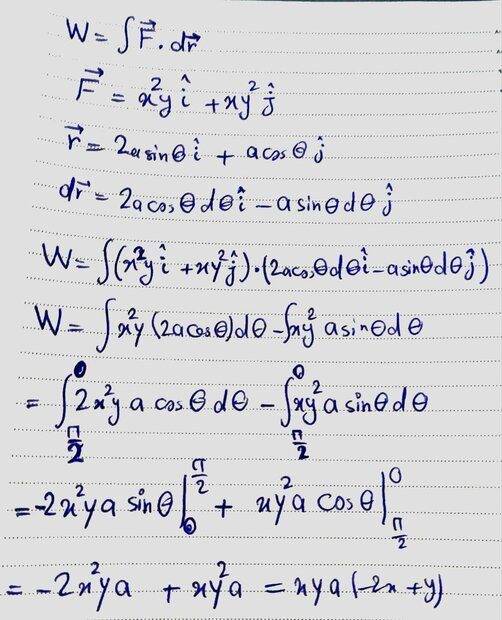 W = ∫F⃗ . dr⃗
F⃗ = x²y î + xy² ĵ
r⃗ = 2a sinθ î + a cosθ ĵ
dr⃗ = 2a cosθ dθ î − a sinθ dθ ĵ
W = ∫(x²y î + xy² ĵ) . (2a cosθ dθ î − a sinθ dθ ĵ)
W = ∫x²y (2a cosθ) dθ − ∫xy² a sinθ dθ
= ∫_{π/2}^{0} 2x²y a cosθ dθ − ∫_{π/2}^{0} xy² a sinθ dθ
= −2x²ya sinθ |_{0}^{π/2} + xy²a cosθ |_{π/2}^{0}
= −2x²ya + xy²a = xya (−2x + y)